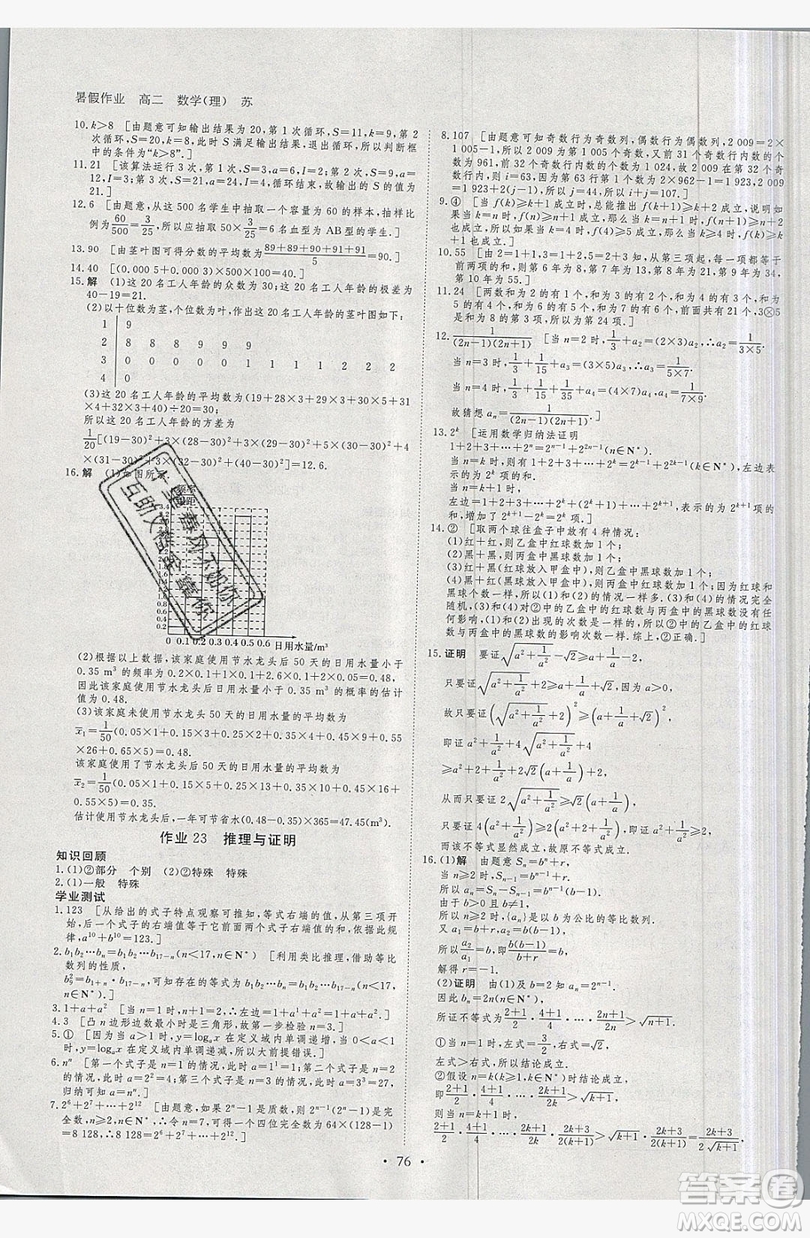 暑假作业 高二 数学(理) 苏
10.k>8 [由题意可知输出结果为20,第1次循环,S=11,k=9,第2
次循环,S=20,k=8,此时S满足输出结果,退出循环,所以判断框中
的条件为“k>8”.]
11.21 [该算法运行3次,第1次后,S=9,I=2;第2次后,S=
12,I=3;第3次后,S=21,I=4.循环结束,所以输出的S的值为
21.]
12.6 [由题意,从这500名学生中抽取一个容量为60的样本,抽样比
例为60/500=3/25,所以应抽取50×3/25=6名血型为AB型的学生.]
13.90 [由茎叶图可得分数的平均数为(89+89+90+91+91)/5=90.]
14.40 [(0.000 5+0.000 3)×500×100=40.]
15.解 (1)这20名工人年龄的众数为30;这20名工人年龄的极差为
40-19=21.
(2)以十位数为茎,个位数为叶,作出这20名工人年龄的茎叶图如下:
1 9
2 8 8 8 9 9 9
3 0 0 0 0 0 1 1 1 1 2 2 2
4 0
(3)这20名工人年龄的平均数为(19+28×3+29×3+30×5+31
×4+32×3+40)÷20=30;
这20名工人年龄的方差为
1/20[(19-30)²+3×(28-30)²+3×(29-30)²+5×(30-30)²+4
×(31-30)²+3×(32-30)²+(40-30)²]=12.6.
16.解 (1)如图所示
0 0.1 0.2 0.3 0.4 0.5 0.6 日用水量/m³
(2)根据以上数据,该家庭使用节水龙头后50天的日用水量小于
0.35 m³的频率为0.2×0.1+1×0.1+2.6×0.1+2×0.05=0.48,
因此该家庭使用节水龙头后日用水量小于0.35 m³的概率的估计
值为0.48.
(3)该家庭未使用节水龙头50天的日用水量的平均数为
x̄₁=1/50(0.05×1+0.15×3+0.25×2+0.35×4+0.45×9+0.55
×26+0.65×5)=0.48.
该家庭使用了节水龙头后50天日用水量的平均数为
x̄₂=1/50(0.05×1+0.15×5+0.25×13+0.35×10+0.45×16+
0.55×5)=0.35.
估计使用节水龙头后,一年可节省水(0.48-0.35)×365=47.45(m³).
作业23 推理与证明
知识回顾
1.(1)②部分 个别 (2)②特殊 特殊
2.(1)一般 特殊
学业测试
1.123 [从给出的式子特点观察可推知,等式右端的值,从第三项开
始,后一个式子的右端值等于它前面两个式子右端值的和,照此规
律,a¹⁰+b¹⁰=123.]
2.b₁b₂…bₙ=b₁b₂…b₁₇₋ₙ(n<17,n∈N*) [利用类比推理,借助等比
数列的性质,
b₉²=b₁₊ₙ·b₁₇₋ₙ,可知存在的等式为b₁b₂…bₙ=b₁b₂…b₁₇₋ₙ(n<17,
n∈N*).]
3.1+a+a² [当n=1时,n+1=2,∴左边=1+a¹+a²=1+a+a².]
4.3 [凸n边形边数最小时是三角形,故第一步检验n=3.]
5.① [当a>1时,y=logₐx在定义域内单调递增,当0<a<1时,y
=logₐx在定义域内单调递减,所以大前提错误.]
6.nⁿ [第一个式子是n=1的情况,此时a=1¹=1;第二个式子是n=2
的情况,此时a=2²=4;第三个式子是n=3的情况,此时a=3³=27,
归纳可知a=nⁿ.]
7.2⁶+2⁷+…+2¹² [由题意,如果2ⁿ-1是质数,则2ⁿ⁻¹(2ⁿ-1)是
完全数(n≥2,n∈N*),∴令n=7,可得一个四位完全数为64×(128-1)
=8 128,∴8 128=2⁶+2⁷+…+2¹².]
8.107 [由题意可知奇数行为奇数列,偶数行为偶数列,2 009=2×
1 005-1,所以2 009为第1 005个奇数,又前31个奇数行内数的个
数的和为961,前32个奇数行内数的个数的和为1 024,故2 009在
第32个奇数行内,所以i=63,因为第63行第1个数为2×962-1=
1 923,2 009=1 923+2(j-1),所以j=44,所以i+j=107.]
9.④ [若f(k)≥k+1成立时,总能推出f(k+1)≥k+2成立,说明如
果当k=n时,f(n)≥n+1成立,那么当k=n+1时,f(n+1)≥n+2
也成立,所以如果当k=4时,f(4)≥5成立,那么当k≥4时,f(k)≥
k+1也成立.]
10.55 [由2=1+1,3=1+2,5=2+3知,从第三项起,每一项都等于
前两项的和,则第6年为8,第7年为13,第8年为21,第9年为34,
第10年为55.]
11.24 [两数和为2的有1个,和为3的有2个,和为4的有3个,和
为5的有4个,和为6的有5个,和为7的有6个,前面共有21个,3⊗5
是和为8的第3项,所以为第24项.]
12.1/((2n-1)(2n+1)) [当n=2时,1/3+a₂=(2×3)a₂,∴a₂=1/(3×5).
当n=3时,1/3+1/15+a₃=(3×5)a₃,∴a₃=1/(5×7).
当n=4时,1/3+1/15+1/35+a₄=(4×7)a₄,a₄=1/(7×9).
故猜想aₙ=1/((2n-1)(2n+1)).]
13.2ᵏ [运用数学归纳法证明
1+2+2²+…+2ⁿ⁻¹=2ⁿ-1(n∈N*).
当n=k时,则有1+2+2²+…+2ᵏ⁻¹=2ᵏ-1(k∈N*),左边表示的
为2ᵏ项的和.
当n=k+1时,则
左边=1+2+2²+…+2ᵏ⁻¹+2ᵏ=2ᵏ⁺¹-1,表示的为2ᵏ⁺¹项的
和,因此,增加了2ᵏ⁺¹-2ᵏ=2ᵏ项.]
14.② [取两个球往盒子中放有4种情况:
(1)红+红,则乙盒中红球数加1个;
(2)黑+黑,则丙盒中黑球数加1个;
(3)红+黑(红球放入甲盒中),则乙盒中黑球数加1个;
(4)黑+红(黑球放入甲盒中),则丙盒中红球数加1个.
因为红球和黑球个数一样,所以(1)和(2)的情况一样多,(3)和(4)的情况完全
随机,(3)和(4)对②中的乙盒中的红球与丙盒中的黑球数没有任
何影响,(1)和(2)出现的次数是一样的,所以对②中的乙盒中的红球
与丙盒中的黑球数的影响次数一样.综上:②正确.]
15.证明 要证√(a²+1/a²)-√2≥a+1/a-2,
只要证√(a²+1/a²)+2≥a+1/a+√2,因为a>0,
故只要证(√(a²+1/a²)+2)²≥(a+1/a+√2)²,
即证a²+1/a²+4√(a²+1/a²)+4
≥a²+2+1/a²+2√2(a+1/a)+2,
从而只要证2√(a²+1/a²)≥√2(a+1/a).
只要证4(a²+1/a²)≥2(a²+2+1/a²),
即a²+1/a²≥2,而该不等式显然成立,故原不等式成立.
16.(1)解 由题意得Sₙ=bⁿ+r,
当n≥2时,Sₙ₋₁=bⁿ⁻¹+r.
所以,aₙ=Sₙ-Sₙ₋₁=bⁿ⁻¹(b-1).
由于b>0且b≠1,
所以n≥2时,{aₙ}是以b为公比的等比数列.
又a₁=b+r,a₂=b(b-1),
所以a₂/a₁=b,即b(b-1)/(b+r)=b,
解得r=-1.
(2)证明 由(1)及b=2知aₙ=2ⁿ⁻¹.
因此bₙ=2n(n∈N*),
所证不等式为(2+1)/2·(4+1)/4·…·(2n+1)/2n>√(n+1).
①当n=1时,左式=3/2,右式=√2,
左式>右式,所以结论成立.
②假设n=k(k∈N*)时结论成立,
即(2+1)/2·(4+1)/4·…·(2k+1)/2k>√(k+1).
则当n=k+1时,
(2+1)/2·(4+1)/4·…·(2k+1)/2k·(2k+3)/(2(k+1))>√(k+1)·(2k+3)/(2(k+1))=(2k+3)/(2√(k+1)).
• 76 •
答案圈
MXQE.COM